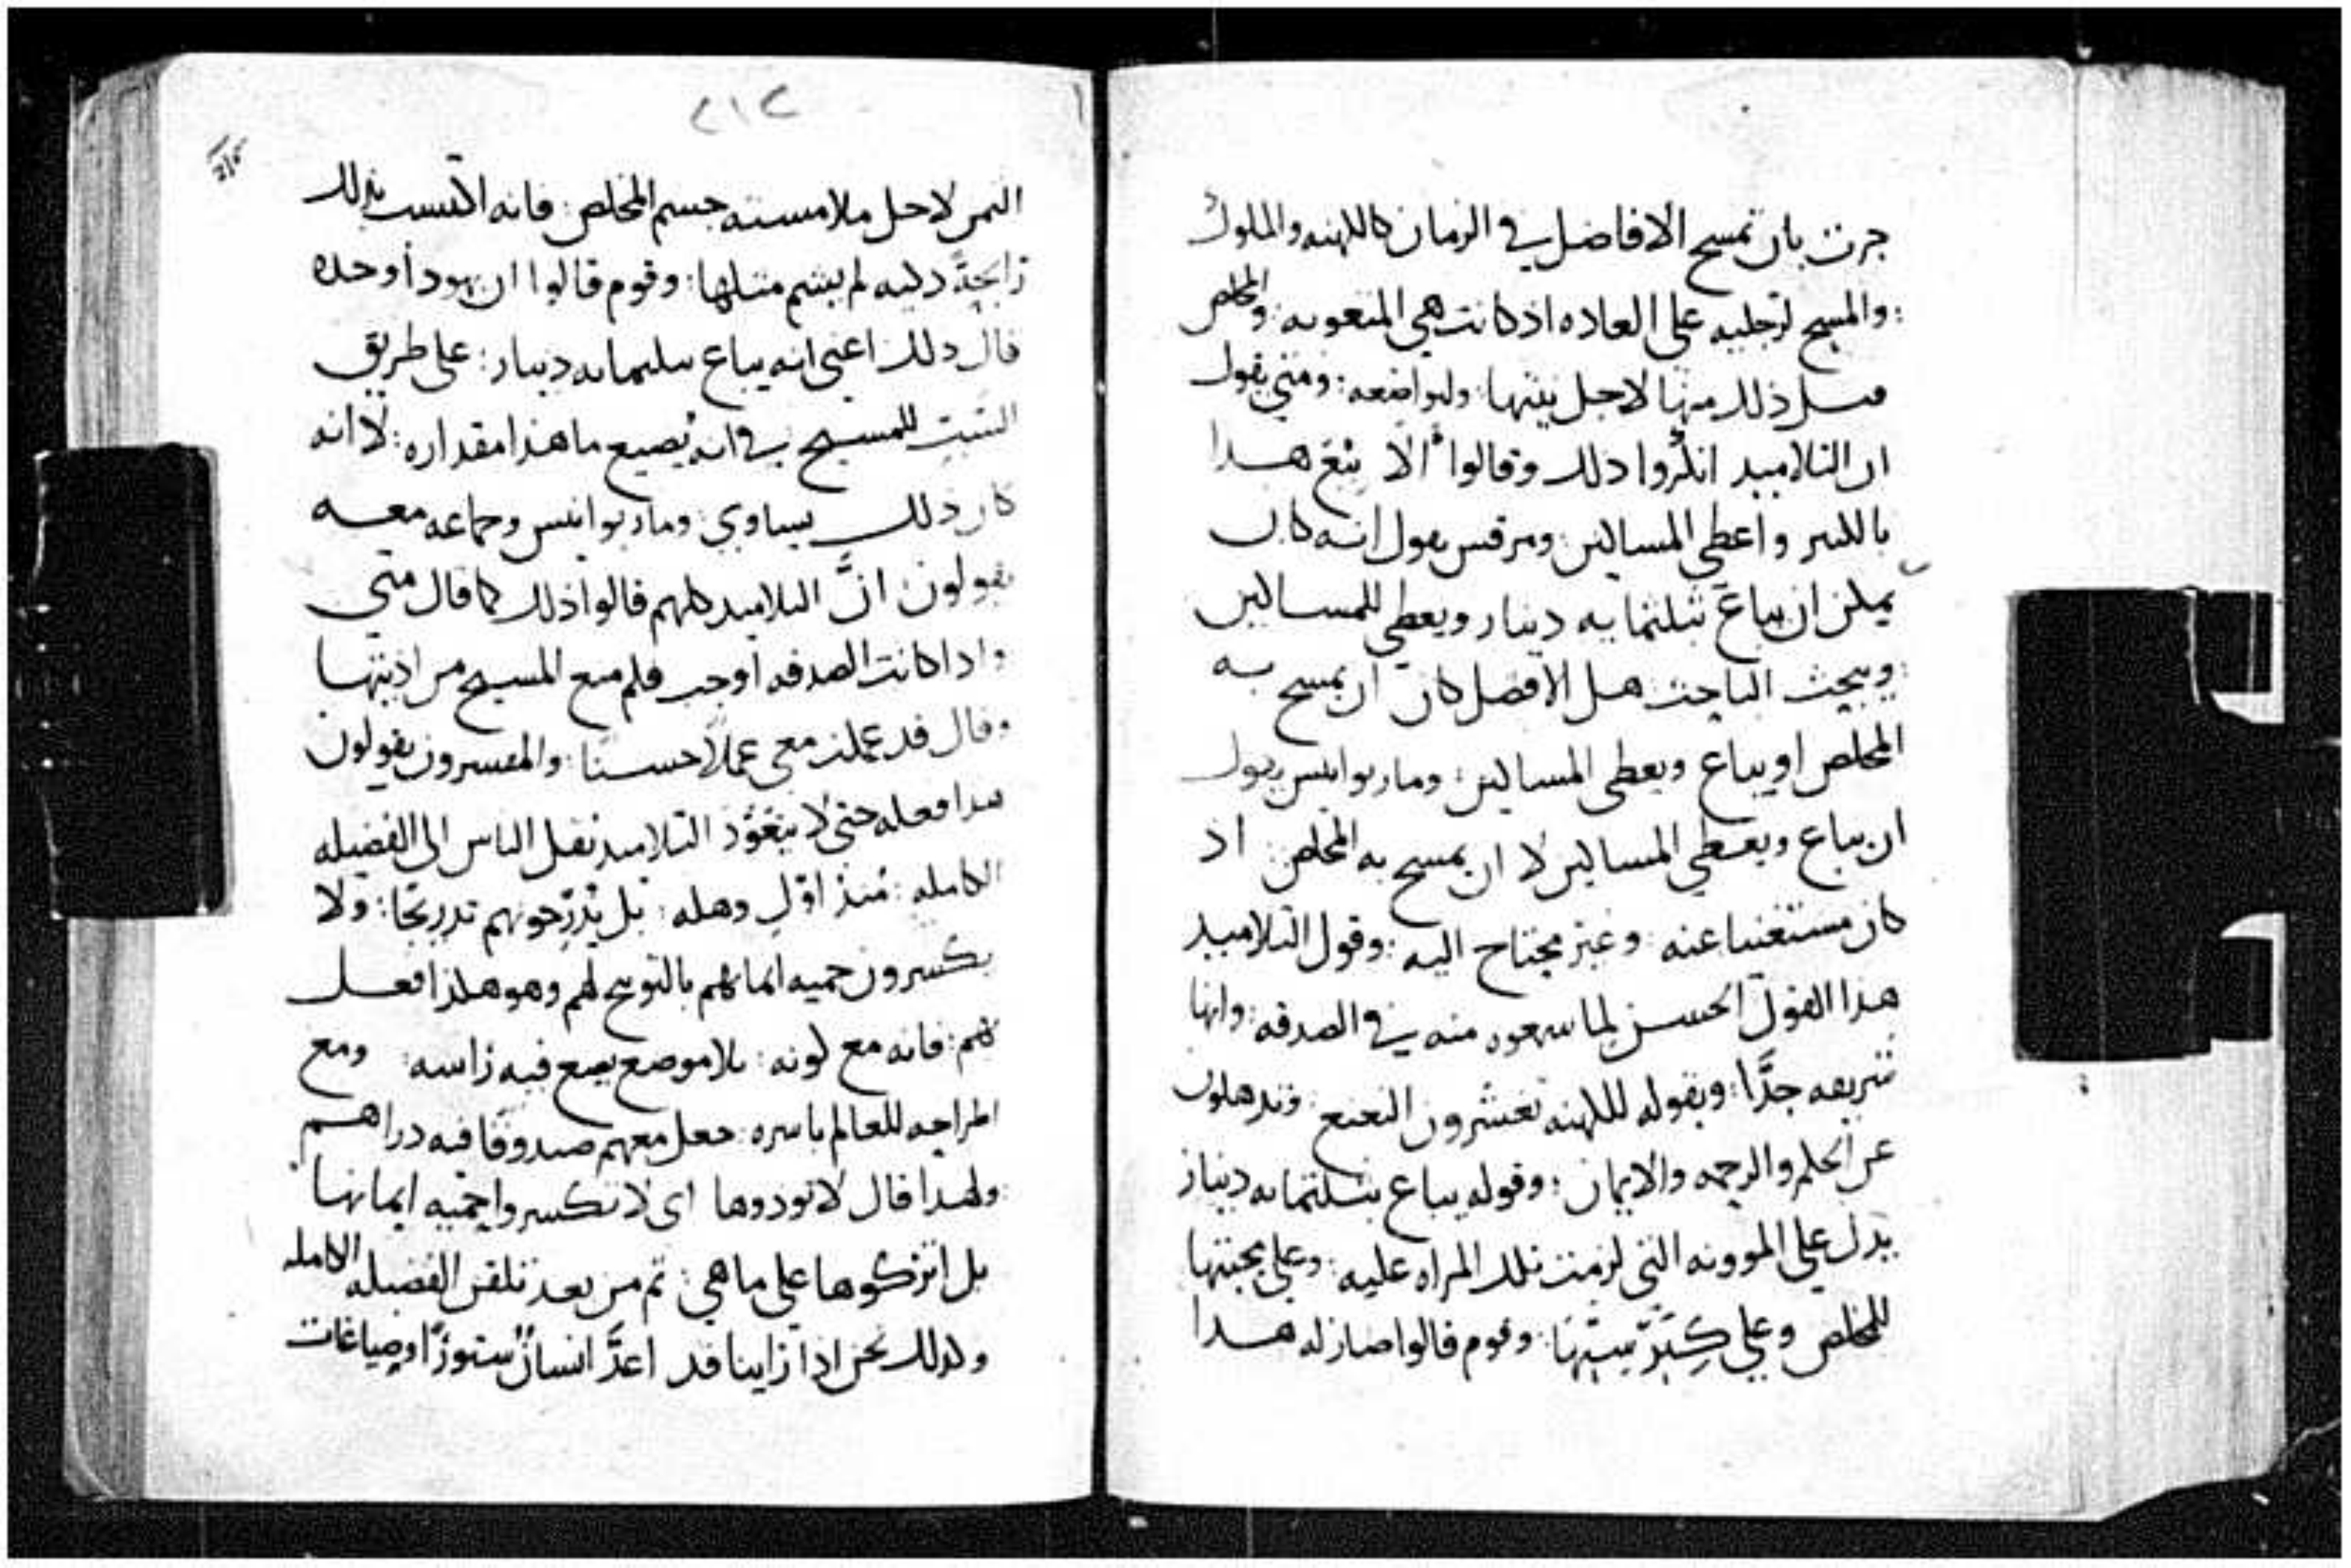 جرت بان تمسح الافاضل في الزمان كالكهنه والملوك
: والمسيح لرجليه على العاده اذ كانت هي المتعوبه : والمخلص
قبل ذلك منها لاجل نيتها : ولتواضعه : ومتي يقول
ان التلاميد انكروا دلك وقالوا ألا بيع هدا
بالكثير واعطي المساكين : ومرقس يقول انه كان
يمكن ان يباع بثلثمايه دينار ويعطي للمساكين
: ويبحث الباحث هل الافضل كان ان يمسح به
المخلص او يباع ويعطى المساكين : ومار يوانيس يقول
ان يباع ويعطي المساكين لا ان يمسح به المخلص : اذ
كان مستغنيا عنه : وغير محتاج اليه : وقول التلاميد
هدا القول الحسن لما سمعوه منه في الصدقه : وانها
شريفه جدًّا : وبقوله للكهنه تعشرون النعنع : وتدهلون
عن الحلم والرحمه والايمان : وقوله يباع بثلثمايه دينار
يدل علي الموونه التي لزمت تلك المراه عليه : وعلي محبتها
للمخلص وعلي كبر نيتها : وقوم قالوا صار له هدا
٢١٢
الثمن لاجل ملامسته جسم المخلص : فانه اكتسب بذلك
رايحةً دكيه لم يشم مثلها : وقوم قالوا ان يهودا وحده
قال دلك اعني انه يباع بثلثمايه دينار : على طريق
الثبت للمسيح في انه يضيع ما هذا مقداره : لا انه
كان ذلك يساوي : ومار يوانيس وجماعه معه
يقولون : انَّ التلاميد كلهم قالوا ذلك كما قال متي
واداكانت الصدقه اوجب فلم منع المسيح من اذيتها
وقال قد عملت معي عملاً حسنًا : والمفسرون يقولون
هدا فعله حتى لا يتعوّد التلاميد نقل الناس الى الفضيله
الكامله : منذ اوّل وهله : بل يدرّجونهم تدريجًا : ولا
يكسرون حميه ايمانهم بالتوبيخ لهم وهو هكذا فعل
بهم : فانه مع كونه : بلا موضع يضع فيه راسه : ومع
اطراحه للعالم باسره : جعل معهم صندوقا فيه دراهم
: ولهدا قال لا توذوها اى لا تكسروا حميه ايمانها
بل اتركوها على ما هي : ثم من بعد تلقن الفضيله الكامله
ولدلك نحن اذا راينا قد اعدَّ انسانٌ ستورًا او صياغات